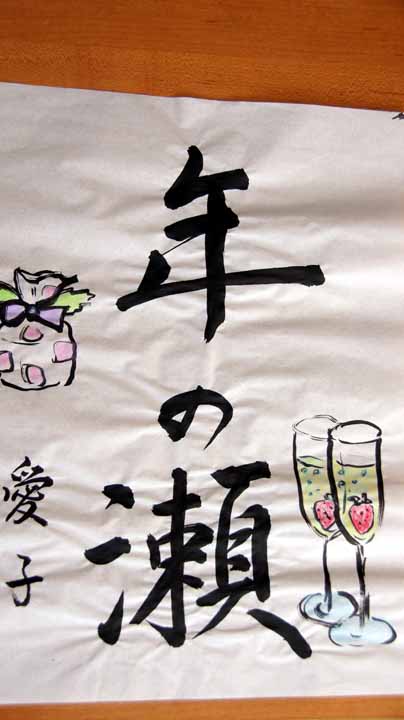 年の瀬
愛子